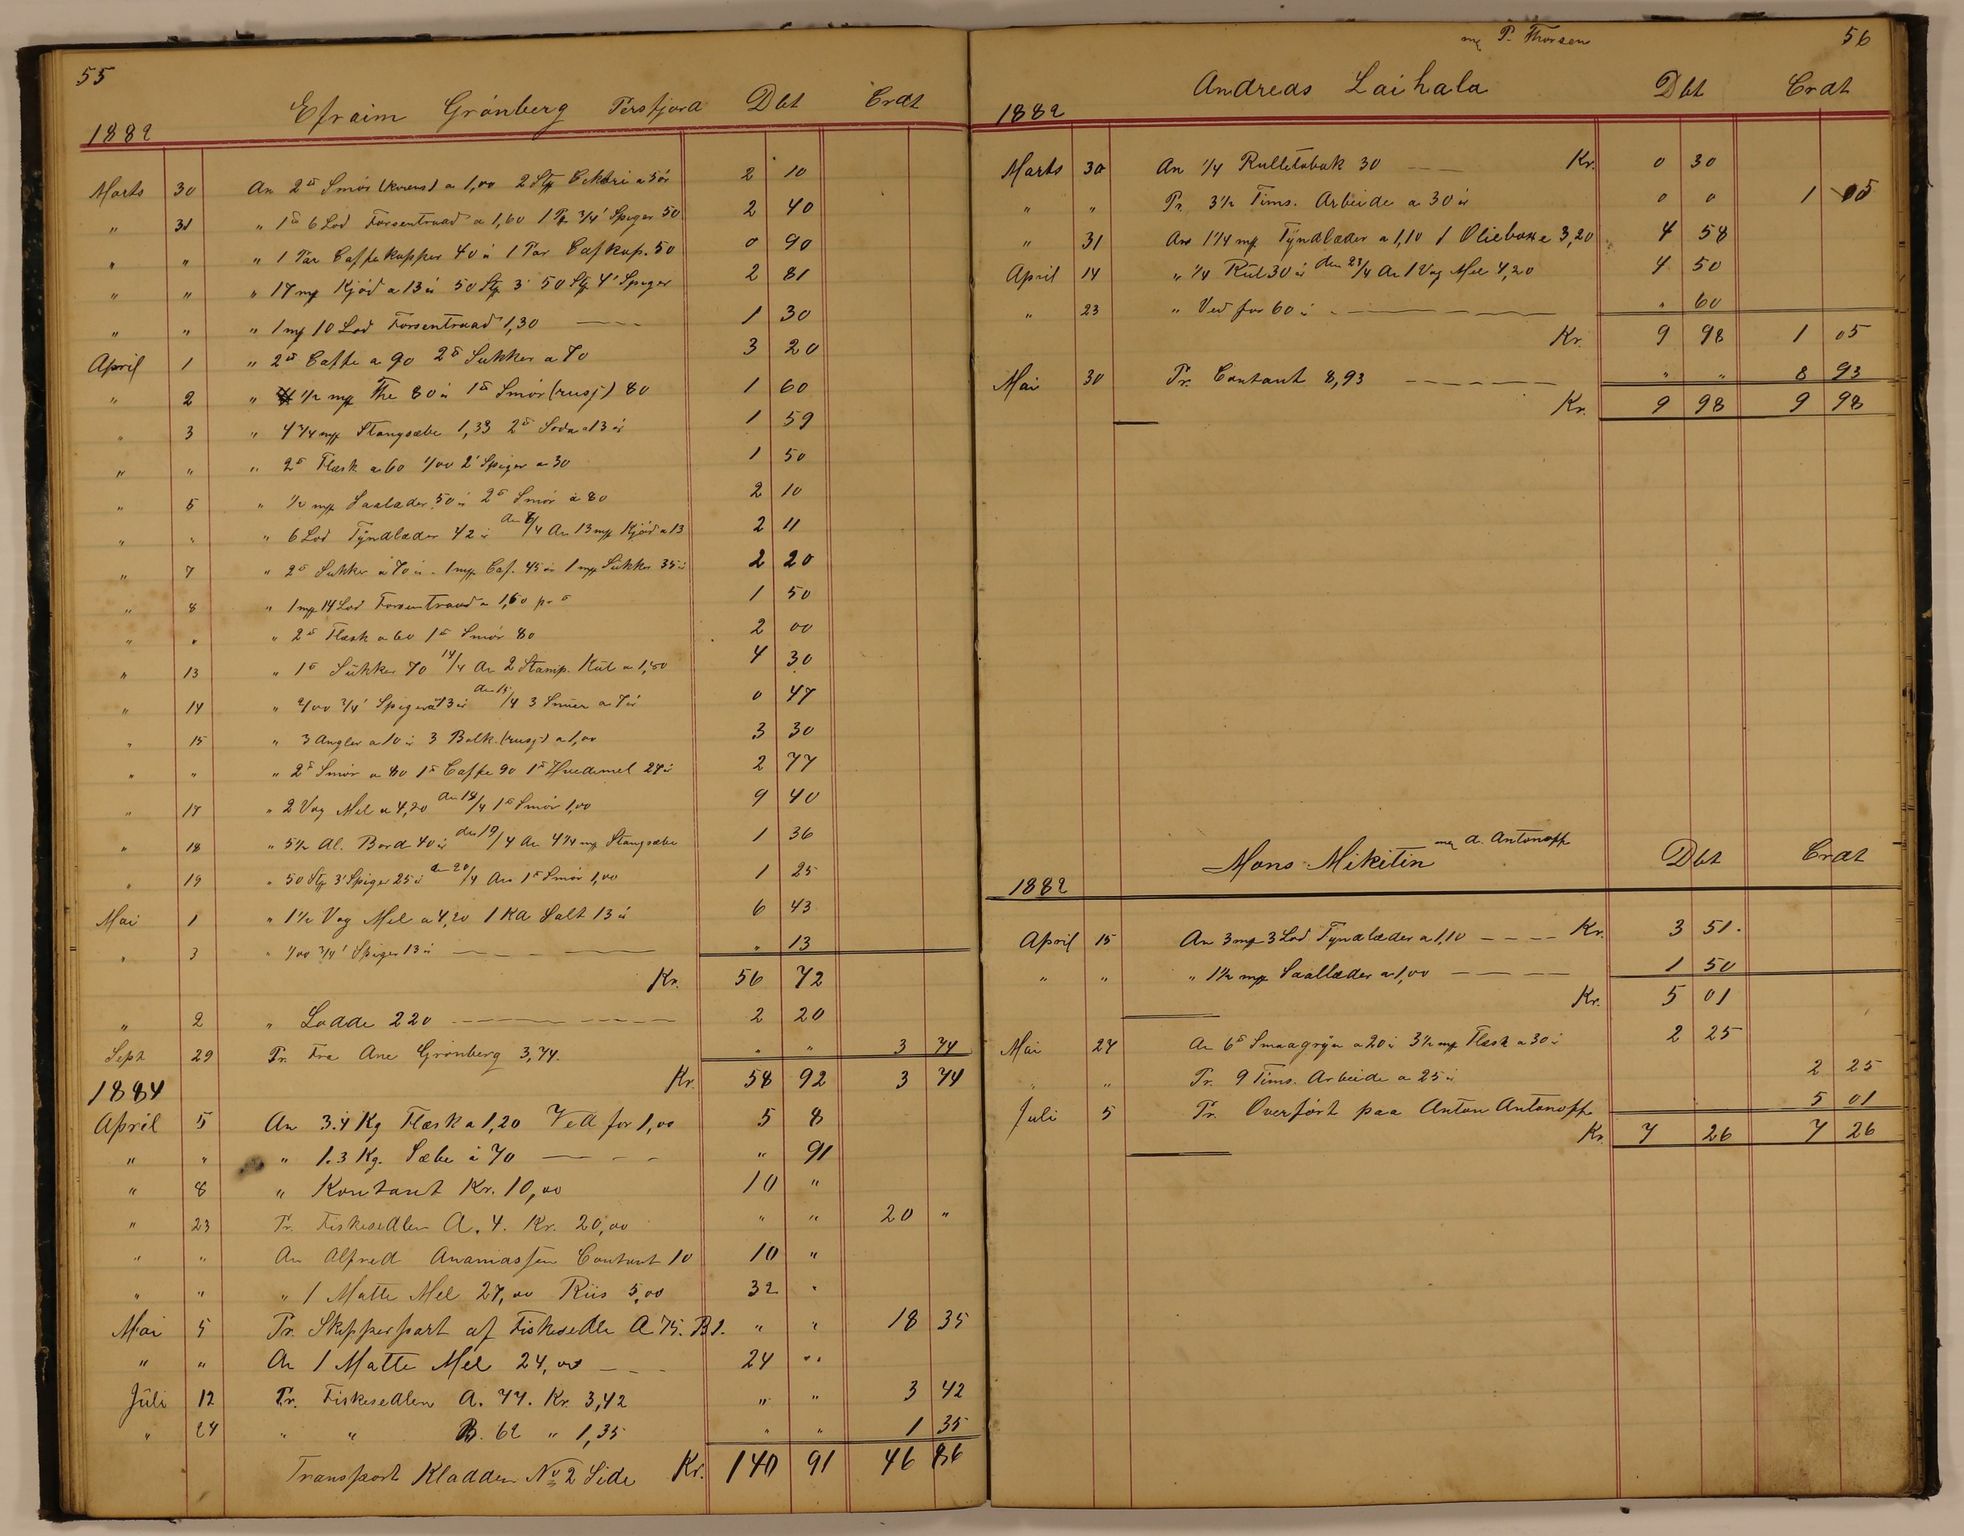 55
Efraim Grönberg Persfjord Dbt Crdt
1882
Marts 30 An 2 ℔ Smör (kvens) a 1,00 2 Stk Cikori a 5 ör 2 10
" 31 " 1 ℔ 6 Lod Forsentraad a 1,60 1 3/4" Spiger 50 2 40
" " " 1 Par Caffekopper 40 ö 1 Par Cafkop. 50 0 90
" " " 17 mp Kjöd a 13 ö 50 Stk 3" 50 Stk 4" Spiger 2 81
" " " 1 mp 10 Lod Forsentraad 1,30 1 30
April 1 " 2 ℔ Caffe a 90 2 ℔ Sukker a 70 3 20
" 2 " 1/2 mp The 80 ö 1 ℔ Smör (rusj) 80 1 60
" 3 " 4 3/4 mp Stangsæbe 1,33 2 ℔ Soda a 13 ör 1 59
" " " 2 ℔ Flæsk a 60 1/00 2" Spiger a 30 1 50
" 5 " 1/2 mp Saalæder 50 ö 2 ℔ Smör à 80 2 10
" " " 6 Lod Tÿndlæder 42 ö den 6/4 An 13 mp Kjöd a 13 2 11
" 7 " 2 ℔ Sukker a 70 ö - 1 mp Caf. 45 ö 1 mp Sukker 35 ö 2 20
" 8 " 1 mp 14 Lod Forsentraad a 1,60 pr ℔ 1 50
" " " 2 ℔ Flæsk a 60 1 ℔ Smör 80 2 00
" 13 " 1 ℔ Sukker 70 14/4 An 2 Stamp. Kul a 1,80 4 30
" 14 " 2/00 3/4" Spiger a 13 ör den 15/4 3 Snüer a 7 ör 0 47
" 15 " 3 Angler a 10 ö 3 Balk. (rusj) a 1,00 3 30
" " " 2 ℔ Smör a 80 1 ℔ Caffe 90 1 ℔ Hvedemel 27 ö 2 77
" 17 " 2 Vog Mel a 4,20 den 18/4 1 ℔ Smör 1,00 9 40
" 18 " 5 1/2 Al. Bord 40 ö den 19/4 An 4 1/4 mp Stangsæbe 1 36
" 19 " 50 Stk 3" Spiger 25 ö d 20/4 An 1 ℔ Smör 1,00 1 25
Mai 1 " 1 1/2 Vog Mel a 4,20 1 Kd Salt 13 ö 6 43
" 3 " 1/00 3/4" Spiger 13 ö " 13
Kr. 56 72
" 2 " Lodde 220 2 20
Sept 29 Pr. Fra Ane Grönberg 3,74. " " 3 74
Kr. 58 92 3 74
1884
April 5 An 3.4 Kg Flæsk a 1,20 Ved for 1,00 5 8
" " " 1.3 Kg. Sæbe à 70 " 91
" 8 " Kontant Kr. 10,00 10 "
" 23 Pr. Fiskesedlen A. 4. Kr. 20,00 " " 20 "
" " An Alfred Ananiassen Contant 10 10 "
" " " 1 Matte Mel 27,00 Riis 5,00 32 "
Mai 5 Pr. Skipperpart af Fiskesedle A 75. B 1. " " 18 35
" " An 1 Matte Mel 24,00 24 "
Jüli 12 Pr. Fiskesedlen A. 77. Kr. 3,42 " " 3 42
" 24 " " B. 62 " 1,35 " " 1 35
Transport Kladden No 2 Side Kr. 140 91 46 86
56
m/ P. Thorsen
Andreas Laihala Dbt Crdt
1882
Marts 30 An 1/4 Rulletobak 30 Kr. 0 30
" " Pr. 3 1/2 Tims. Arbeide a 30 ö 0 0 1 05
" 31 An 1 1/4 mp Tÿndlæder a 1,10 1 Olieboxe 3,20 4 58
April 14 " 1/4 Kul 30 ö den 21/4 An 1 Vog Mel 4,20 4 50
" 23 " Ved for 60 ö " 60
Kr. 9 98 1 05
Mai 30 Pr. Contant 8,93 " " 8 93
Kr. 9 98 9 98
m/ A. Antonoff
Mons Mikitin Dbt Crdt
1882
April 15 An 3 mp 3 Lod Tyndlæder a 1,10 Kr. 3 51.
" " " 1 1/2 mp Saallæder a 1,00 1 50
Kr. 5 01
Mai 27 An 6 ℔ Smaagryn a 20 ö 3 1/2 mp Flæsk a 30 ö 2 25
" " Pr. 9 Tims. Arbeide a 25 ö 2 25
Juli 5 Pr. Overfört paa Anton Antonoff 5 01
Kr. 7 26 7 26